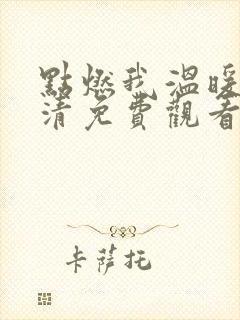 點燃我,溫暖
清免費觀看
卡薩托